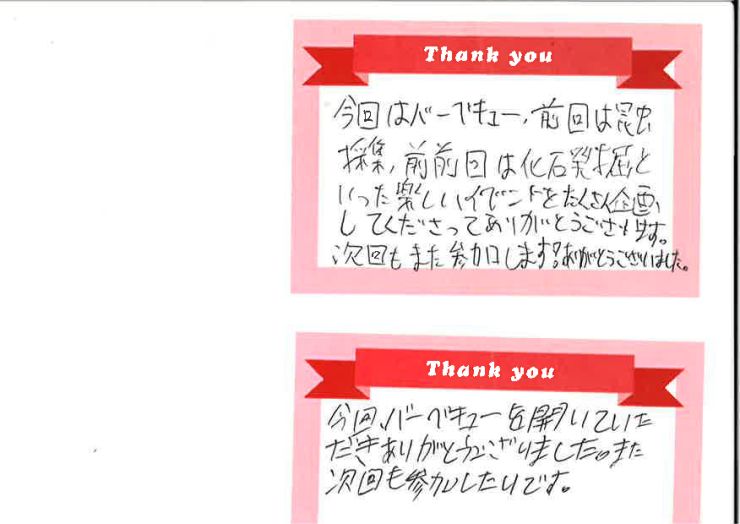 Thank you
今回はバーベキュー、前回は昆虫
採集、前前回は化石発掘と
いった楽しいイベントをたくさん企画
してくださってありがとうございます。
次回もまた参加します!ありがとうございました。
Thank you
今回、バーベキューを開いていた
だきありがとうございました。また
次回も参加したいです。